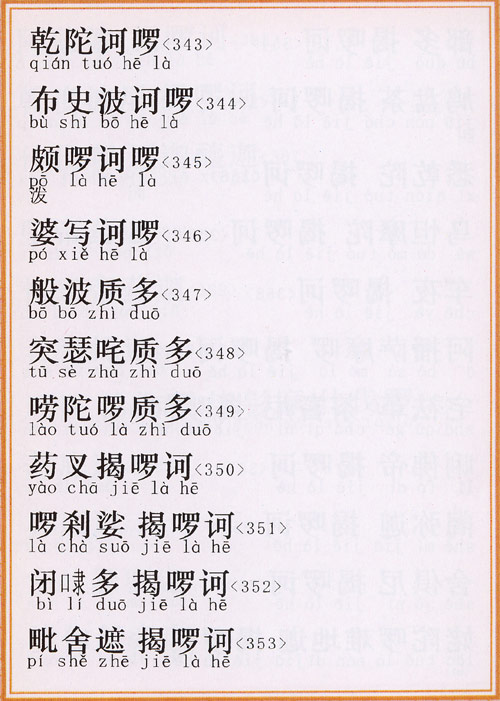 乾陀诃啰<343>
qián tuó hē là
布史波诃啰<344>
bù shǐ bō hē là
颇啰诃啰<345>
pō là hē là
泼
婆写诃啰<346>
pó xiě hē là
般波质多<347>
bō bō zhì duō
突瑟咤质多<348>
tū sè zhà zhì duō
唠陀啰质多<349>
lào tuó là zhì duō
药叉揭啰诃<350>
yào chā jiē là hē
啰刹娑 揭啰诃<351>
là chà suō jiē là hē
闭㘑多 揭啰诃<352>
bì lí duō jiē là hē
毗舍遮 揭啰诃<353>
pí shě zhē jiē là hē